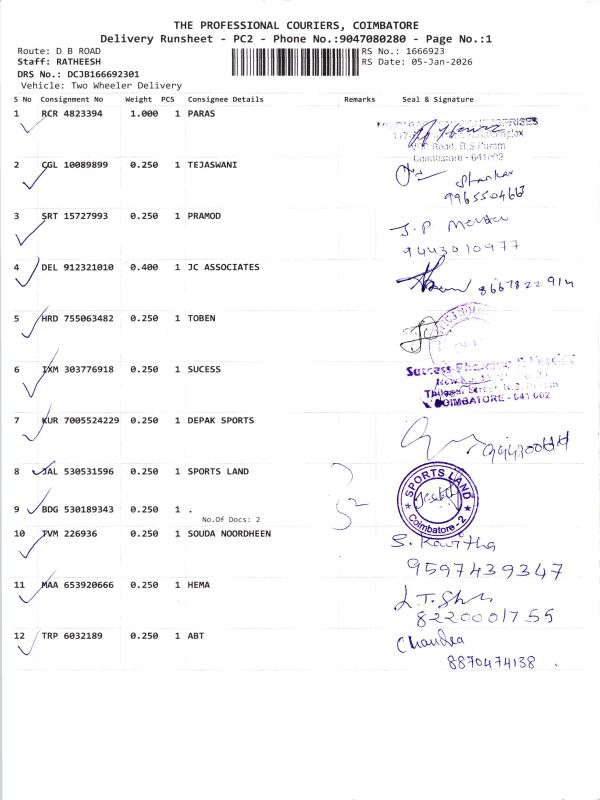 THE PROFESSIONAL COURIERS, COIMBATORE
Delivery Runsheet - PC2 - Phone No.:9047080280 - Page No.:1
Route: D B ROAD
RS No.: 1666923
Staff: RATHEESH
RS Date: 05-Jan-2026
DRS No.: DCJB166692301
Vehicle: Two Wheeler Delivery
S No Consignment No Weight PCS Consignee Details Remarks Seal & Signature
1 RCR 4823394 1.000 1 PARAS
R.S Puram
Coimbatore - 641 002
2 CGL 10089899 0.250 1 TEJASWANI
Shankar
9965504667
3 SRT 15727993 0.250 1 PRAMOD
J.P.
9443010977
4 DEL 912321010 0.400 1 JC ASSOCIATES
8667822914
5 HRD 755063482 0.250 1 TOBEN
6 IXM 303776918 0.250 1 SUCESS
Success
COIMBATORE - 641 002
7 KUR 7005524229 0.250 1 DEPAK SPORTS
8 JAL 530531596 0.250 1 SPORTS LAND
SPORTS LAND
Coimbatore - 2
9 BDG 530189343 0.250 1 .
No.Of Docs: 2
2
10 TVM 226936 0.250 1 SOUDA NOORDHEEN
S. Kavitha
9597439347
11 MAA 653920666 0.250 1 HEMA
8220001755
12 TRP 6032189 0.250 1 ABT
Chandra
8870474138